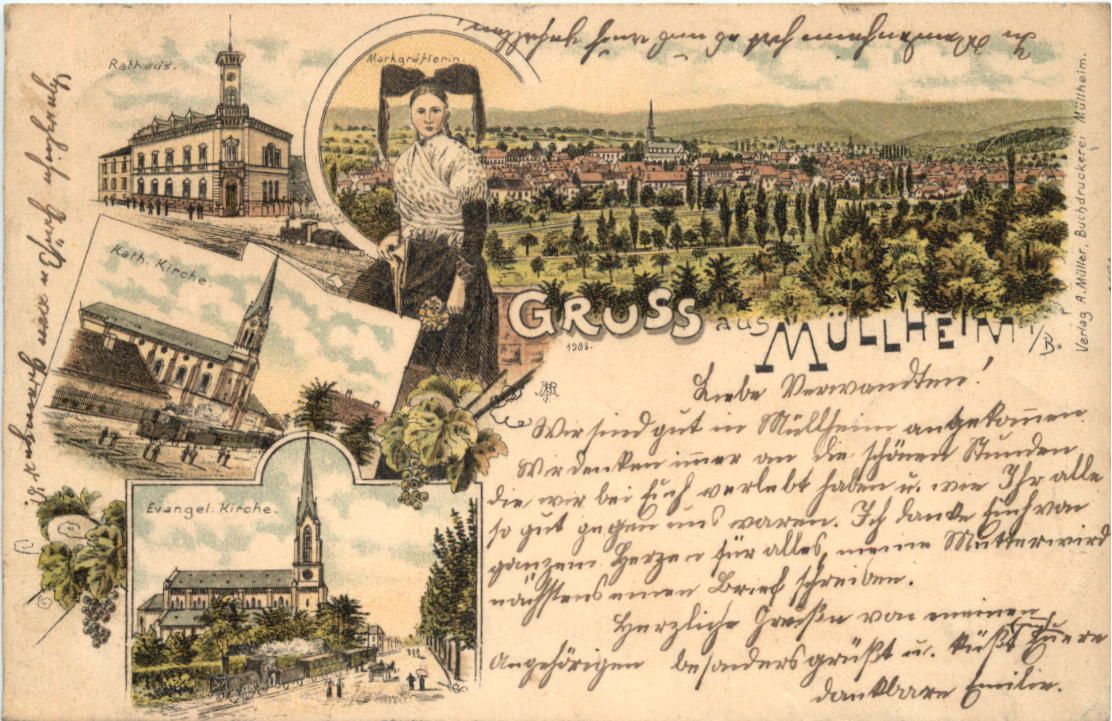 Rathaus.
Markgräflerin.
Kath. Kirche.
Evangel. Kirche.
GRUSS aus MÜLLHEIM i/B.
1983.
Verlag A. Müller, Buchdruckerei Müllheim.
Liebe Verwandten!
Wir sind gut in Müllheim angekom̄en.
Wir denken im̄er an die schönen Stunden
die wir bei Euch verlebt haben u. wie Ihr alle
so gut gegen uns waren. Ich danke Euch von
ganzem Herzen für alles, meine Mutter wird
nächstens einen Brief schreiben.
Herzliche Grüße von meinen
Angehörigen besonders grüßt u. küßt Euere
dankbare Emilie.
In hat es uns auch